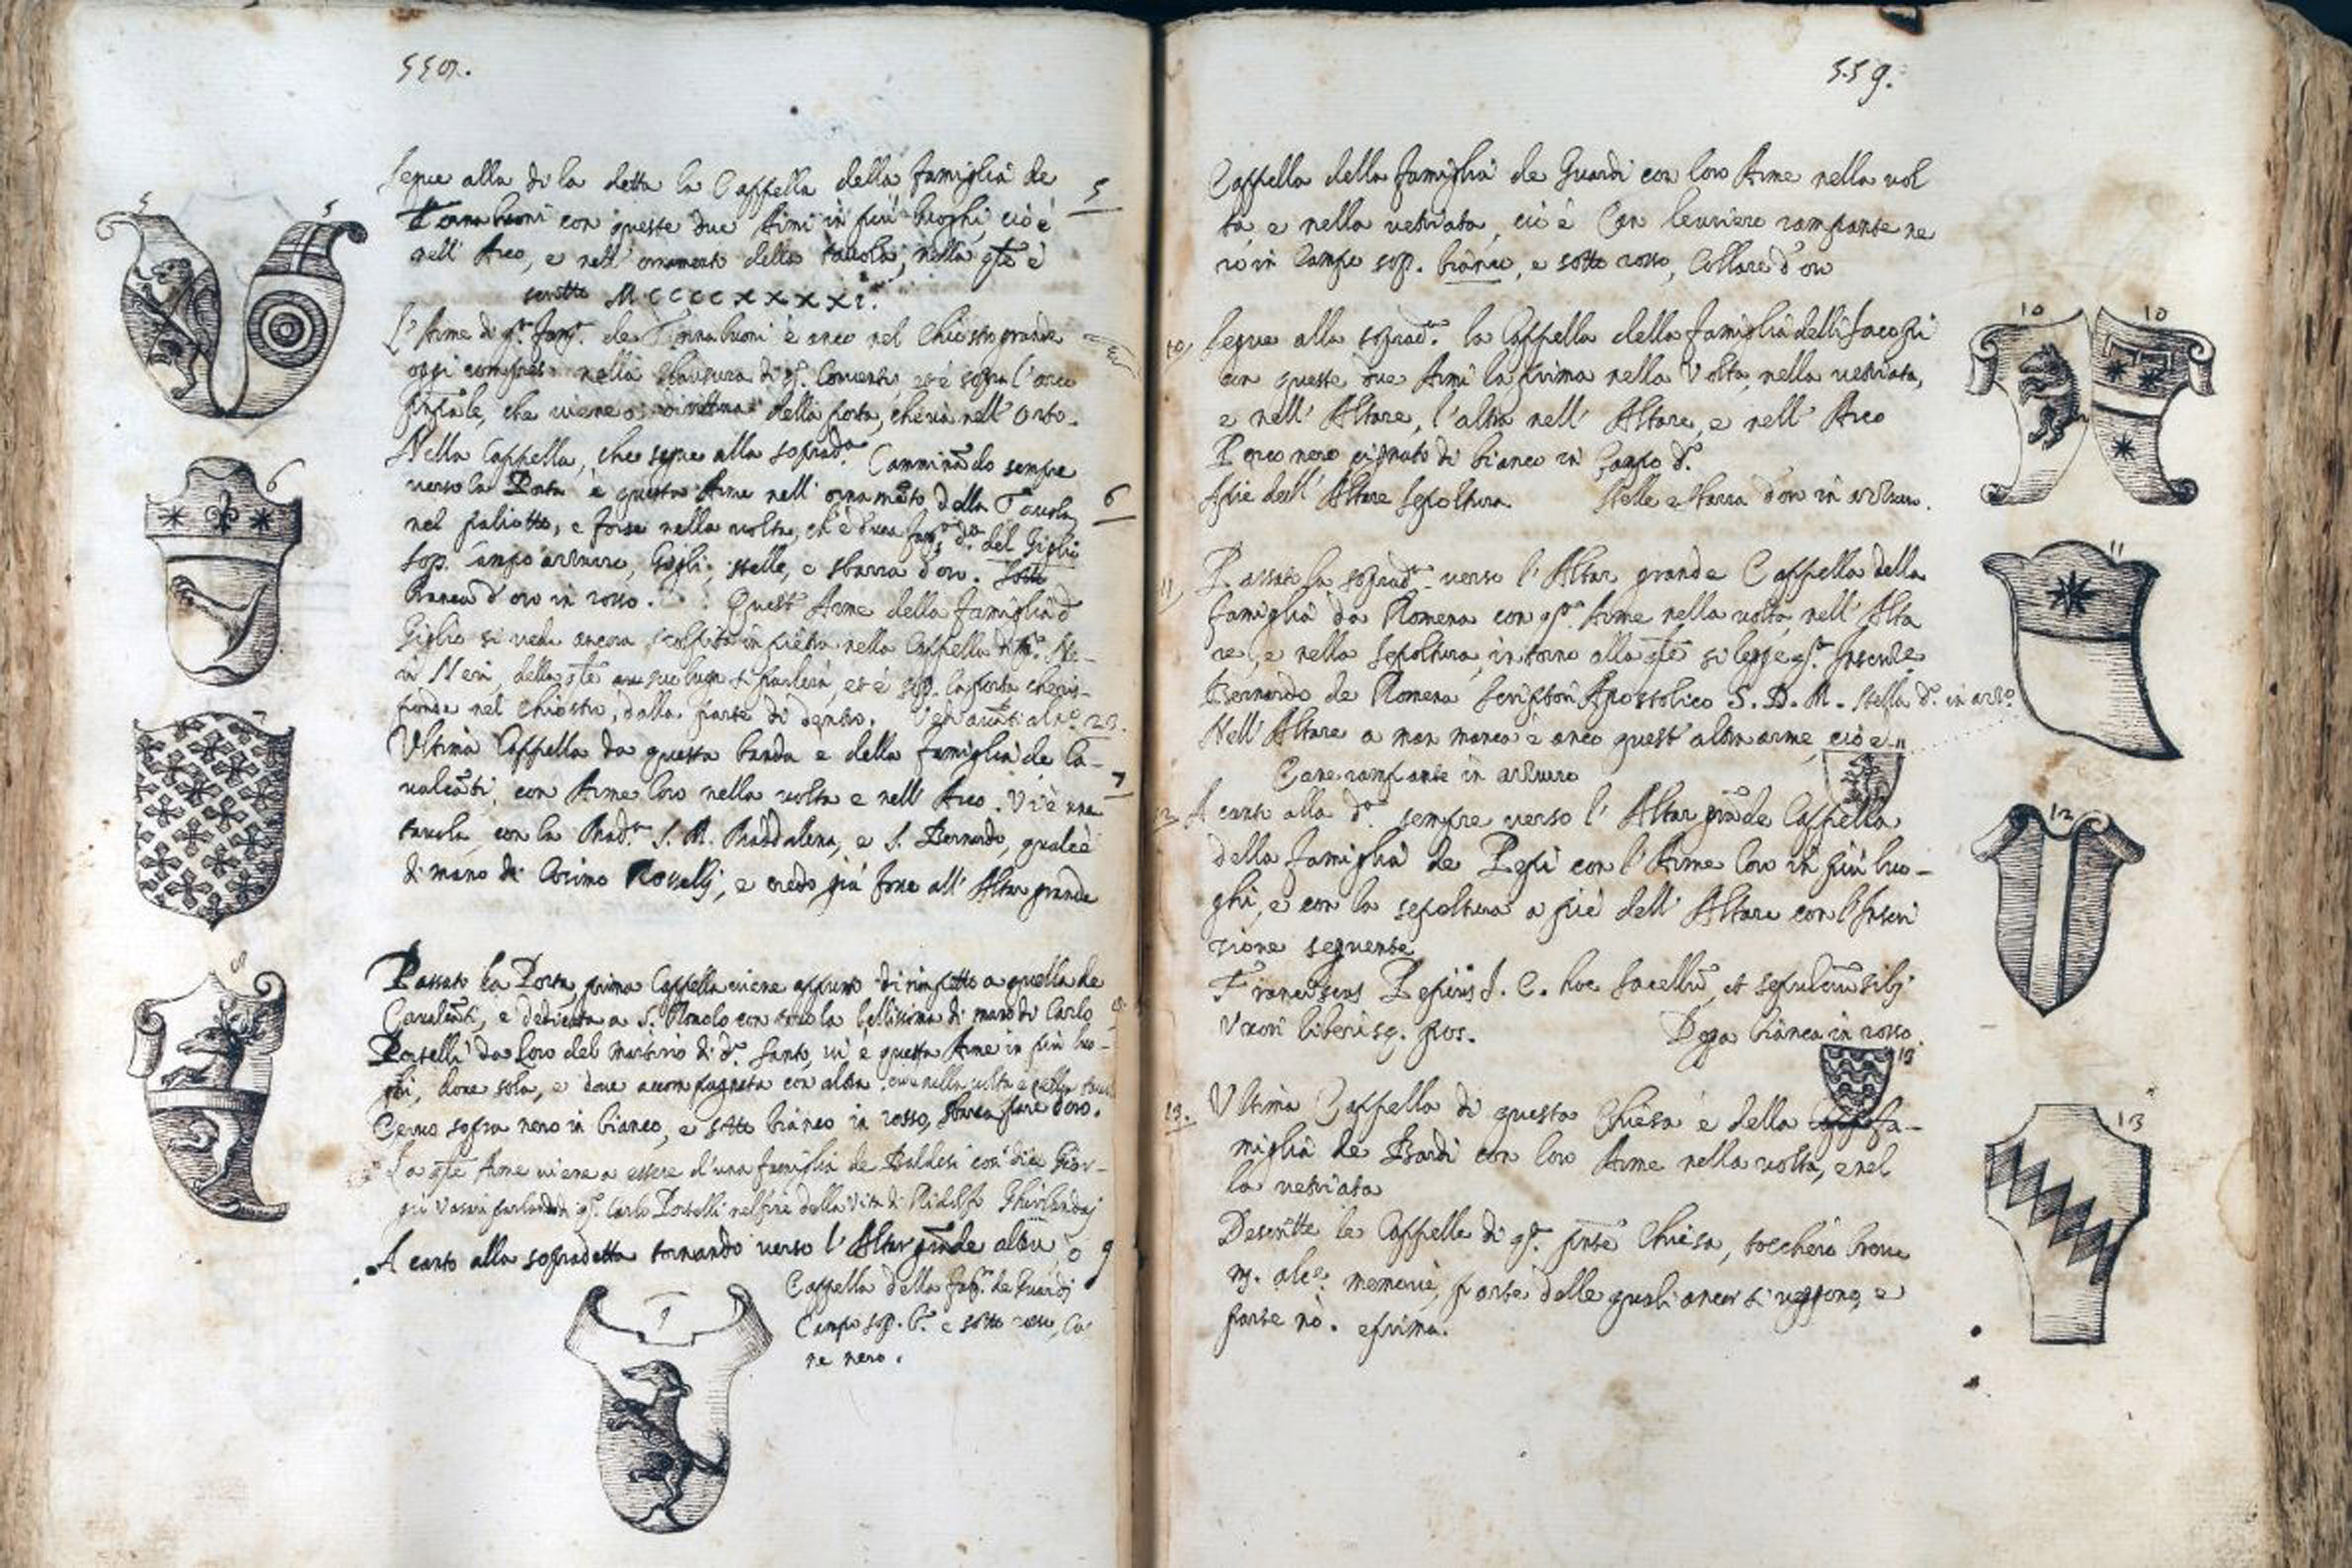 558.
5
5
Segue alla di la detta la Cappella della famiglia de
5
Tornabuoni con queste due Armi in piu luoghi, cio è
nell' Arco, e nell' ornamento della tavola, nella qle è
scritto MCCCCXXXXI.
L'Arme di qta famª. de Tornabuoni è anco nel Chiostro grande
oggi compreso nella Clausura di qto. Convento, et è sopra l'arco
che viene a dirittura della porta, che và nell' Orto.
Nella Cappella, che segue alla sopradª. Camminãdo sempre
6
verso la Porta è questa Arme nell' ornamẽto della Tavola
6
nel paliotto, e forse nella volta, ch'è d'una famª. dª. del Giglio
sop. campo azzurro, Gigli, stelle, e sbarra d'oro. sotto
Branca d'oro in rosso. Quest' Arme della famiglia d
Giglio si vede ancora scolpita in pietra nella Cappella di Ne-
ri Neri, della qle a suo luogo si parlerà, et è sop. la porta che ris-
ponde nel chiostro, dalla parte di dentro. Vedi avãti al nº. 23.
7
Ultima Cappella da questa banda e della famiglia de Ca-
valcãti, con Arme loro nella volta e nell' Arco. Vi è una
7
tavola con la Madª. S. M. Maddalena, e S. Bernardo, qual è
di mano di Cosimo Rosselli, e credo già fosse all' Altar grande
8
Passato la Porta, prima Cappella viene appunto dirimpetto a quella de
Cavalcãti, e dedicata a S. Romolo con tavola bellissima di mano di Carlo
8
Portelli da Loro del Martirio di dº. Santo, vi è questa Arme in più luo-
ghi, dove sola, e dove accompagnata con altra, cioè nella volta e nella
Cervo sopra nero in bianco, e sotto bianco in rosso, sbarra pare d'oro.
La qle Arme viene a essere d'una famiglia de Baldesi come dice Gior-
gio Vasari parlando di qto. Carlo Portelli nel fine della Vita di Ridolfo Ghirlandaj
A canto alla sopradetta tornando verso l'Altar grãde altra
9
Cappella della famª. de Guardi
9
Campo sop. bº. e sotto rosso, Ca-
ne nero.
559.
Cappella della famiglia de Guardi con loro Arme nella vol
ta, e nella vetriata, cio è Can levriere rampante ne
ro in Campo sop. bianco, e sotto rosso, Collare d'oro
10
10
10
Segue alla sopradª. la Cappella della famiglia delli Jacopi
con queste due Armi la prima nella Volta, nella vetriata,
e nell' Altare, l'altra nell' Altare, e nell' Arco
Porco nero cignato di bianco in Campo dº.
A piè dell' Altare sepoltura. Stelle e sbarra d'oro in azzurro.
11
11
Passata la sopradª. verso l'Altar grande Cappella della
famiglia da Romena con qta. Arme nella volta, nell' Alta
re, e nella sepoltura, intorno alla qle si legge qta. Inscrize.
Bernardo de Romena Scriptori Apostolico S. D. M. Stella dº. in azzº.
Nell' Altare a man manca è anco quest' altra arme, cio è
11
Cane rampante in azzurro
12
12
A canto alla dª. sempre verso l'Altar grãde Cappella
della famiglia de Pepi con l'Arme loro in più luo-
ghi, e con la sepoltura a piè dell' Altare con l'Inscri
zione seguente
Franciscus Pepius J. C. hoc sacellũ, et sepulcrum sibj
Uxori liberisq. pos. Doga bianca in rosso.
13
13
13.
Ultima Cappella di questa Chiesa è della fa-
miglia de Bardi con loro Arme nella volta, e nel
la vetriata
Descritte le Cappelle di qta. pñte Chiesa, toccherò breve
m. alce. memorie, parte delle quali ancor si veggono, e
parte nò. e prima.